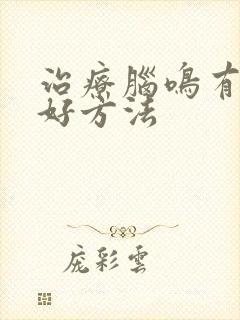 治療腦鳴有
好方法
庞彩雲